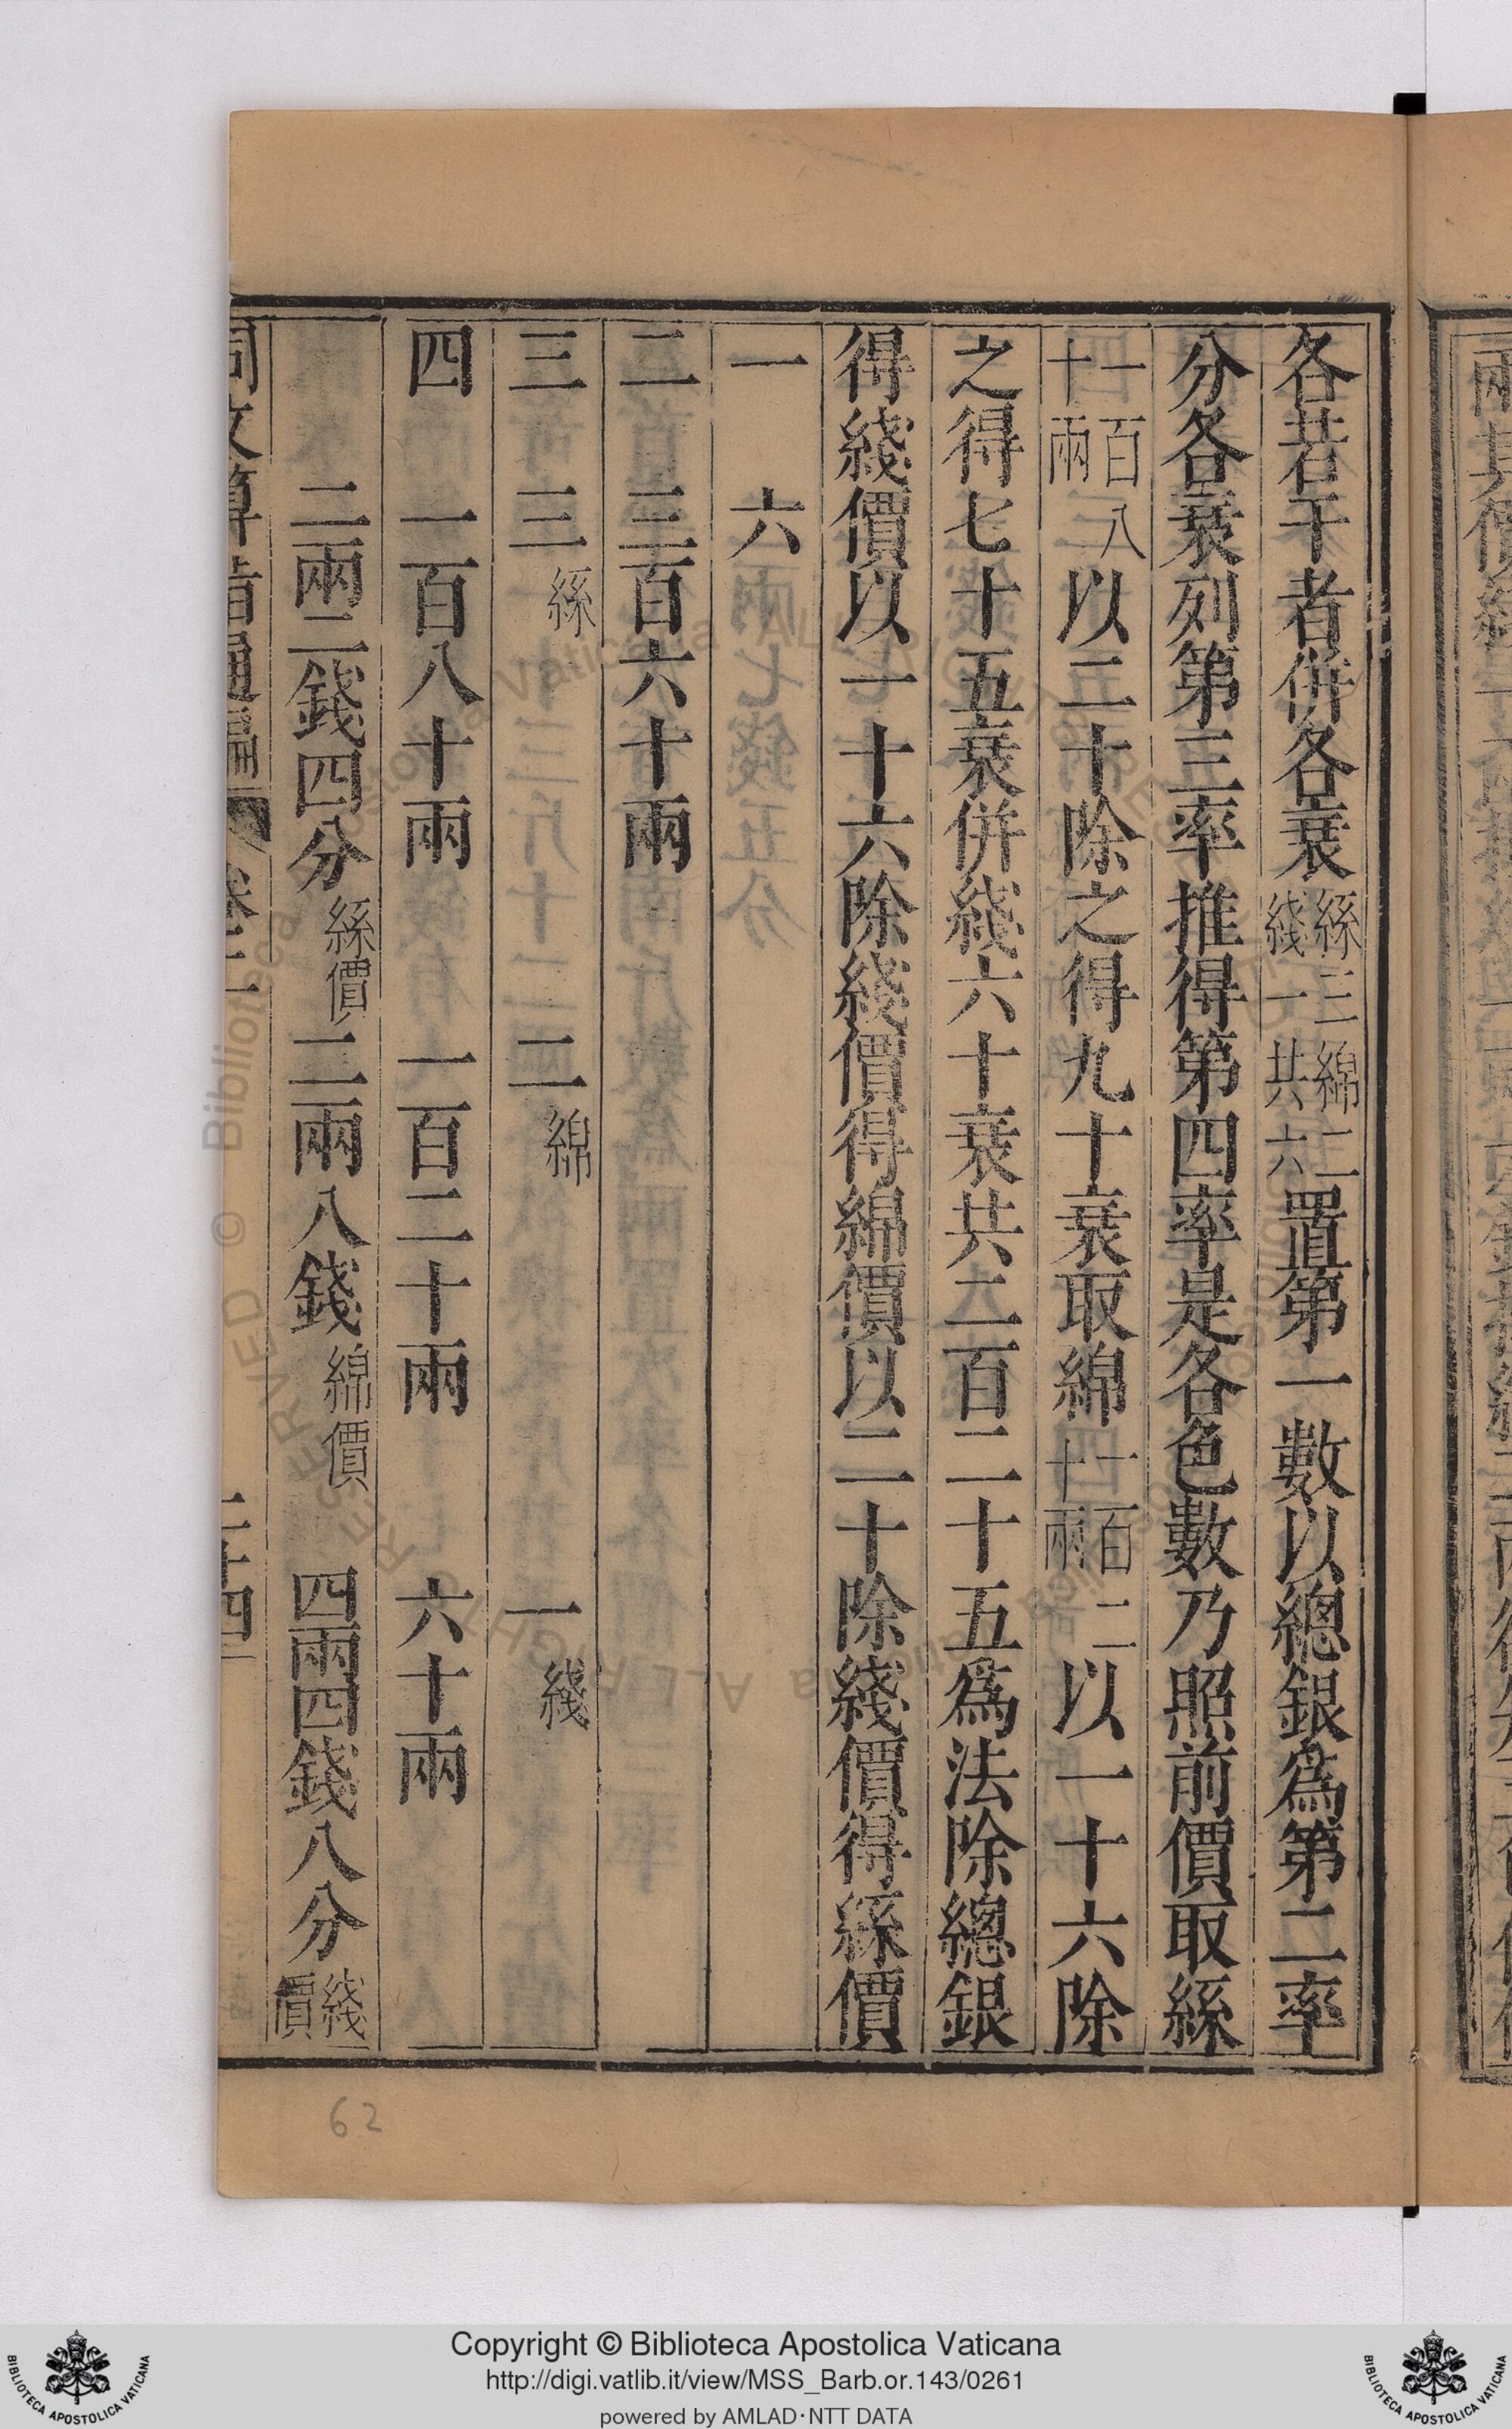 各若干者併各衰絲三綿二綫一共六置第一數以總銀爲第二率
分各衰列第三率推得第四率是各色數乃照前價取絲
一百八十兩以二十除之得九十衰取綿一百二十兩以一十六除
之得七十五衰併綫六十衰共二百二十五爲法除總銀
得綫價以一十六除綫價得綿價以二十除綫價得絲價
一 六
二 三百六十兩
三 三絲 二綿 一綫
四 一百八十兩 一百二十兩 六十兩
二兩二錢四分絲價 二兩八錢綿價 四兩四錢八分綫價
同文算指通編 卷二 二十四
62
Copyright © Biblioteca Apostolica Vaticana
http://digi.vatlib.it/view/MSS_Barb.or.143/0261
powered by AMLAD·NTT DATA
BIBLIOTECA APOSTOLICA VATICANA
BIBLIOTECA APOSTOLICA VATICANA